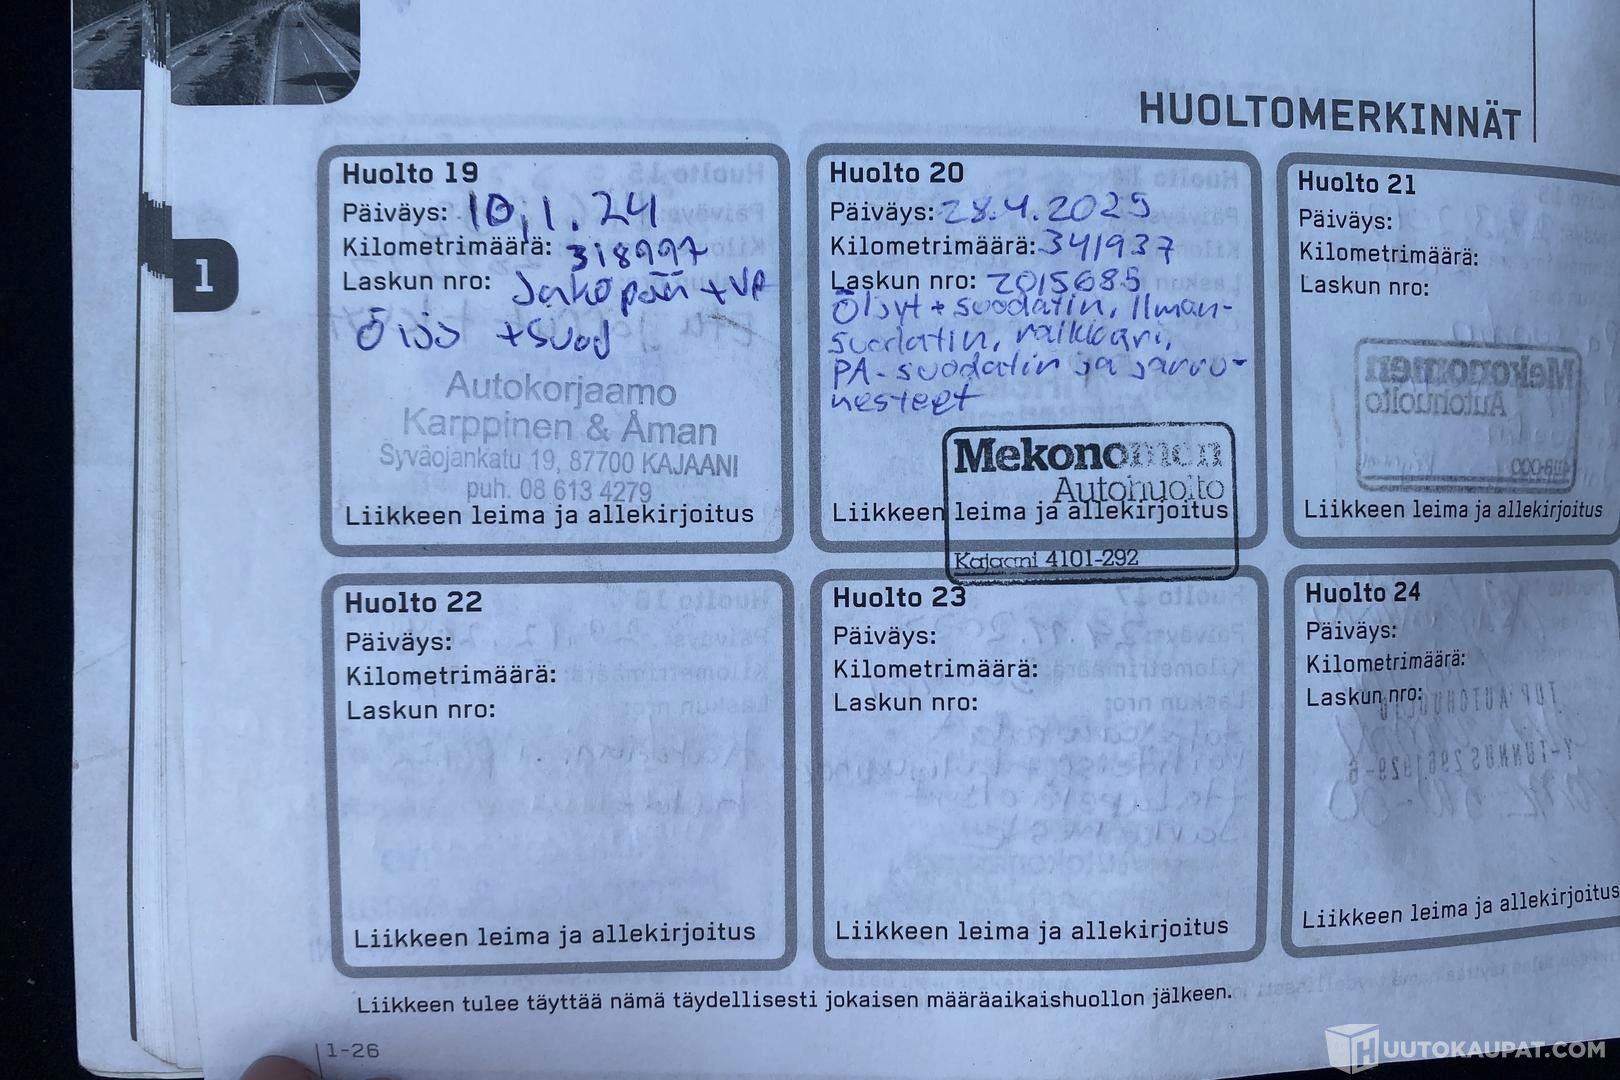 HUOLTOMERKINNÄT
1
Huolto 19
Päiväys: 10.1.24
Kilometrimäärä: 318997
Laskun nro: Jakopää + VP
Öljy + suod
Autokorjaamo
Karppinen & Åman
Syväojankatu 19, 87700 KAJAANI
puh. 08 613 4279
Liikkeen leima ja allekirjoitus
Huolto 20
Päiväys: 28.4.2025
Kilometrimäärä: 341937
Laskun nro: 2015685
Öljyt + suodatin, Ilman-
suodatin, raikkari,
PA-suodatin ja jarru-
nesteet
Mekonomen
Autohuolto
Liikkeen leima ja allekirjoitus
Kajaani 4101-292
Huolto 21
Päiväys:
Kilometrimäärä:
Laskun nro:
Liikkeen leima ja allekirjoitus
Huolto 22
Päiväys:
Kilometrimäärä:
Laskun nro:
Liikkeen leima ja allekirjoitus
Huolto 23
Päiväys:
Kilometrimäärä:
Laskun nro:
Liikkeen leima ja allekirjoitus
Huolto 24
Päiväys:
Kilometrimäärä:
Laskun nro:
Liikkeen leima ja allekirjoitus
Liikkeen tulee täyttää nämä täydellisesti jokaisen määräaikaishuollon jälkeen.
1-26
HUUTOKAUPAT.COM